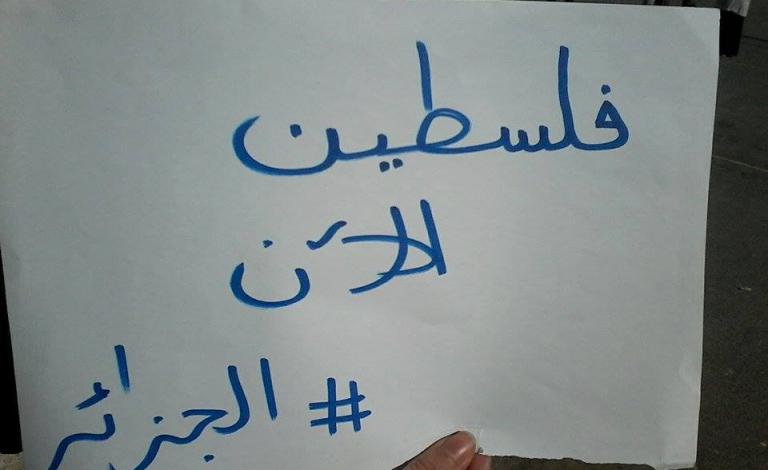 فلسطين
الآن
# الجزائر